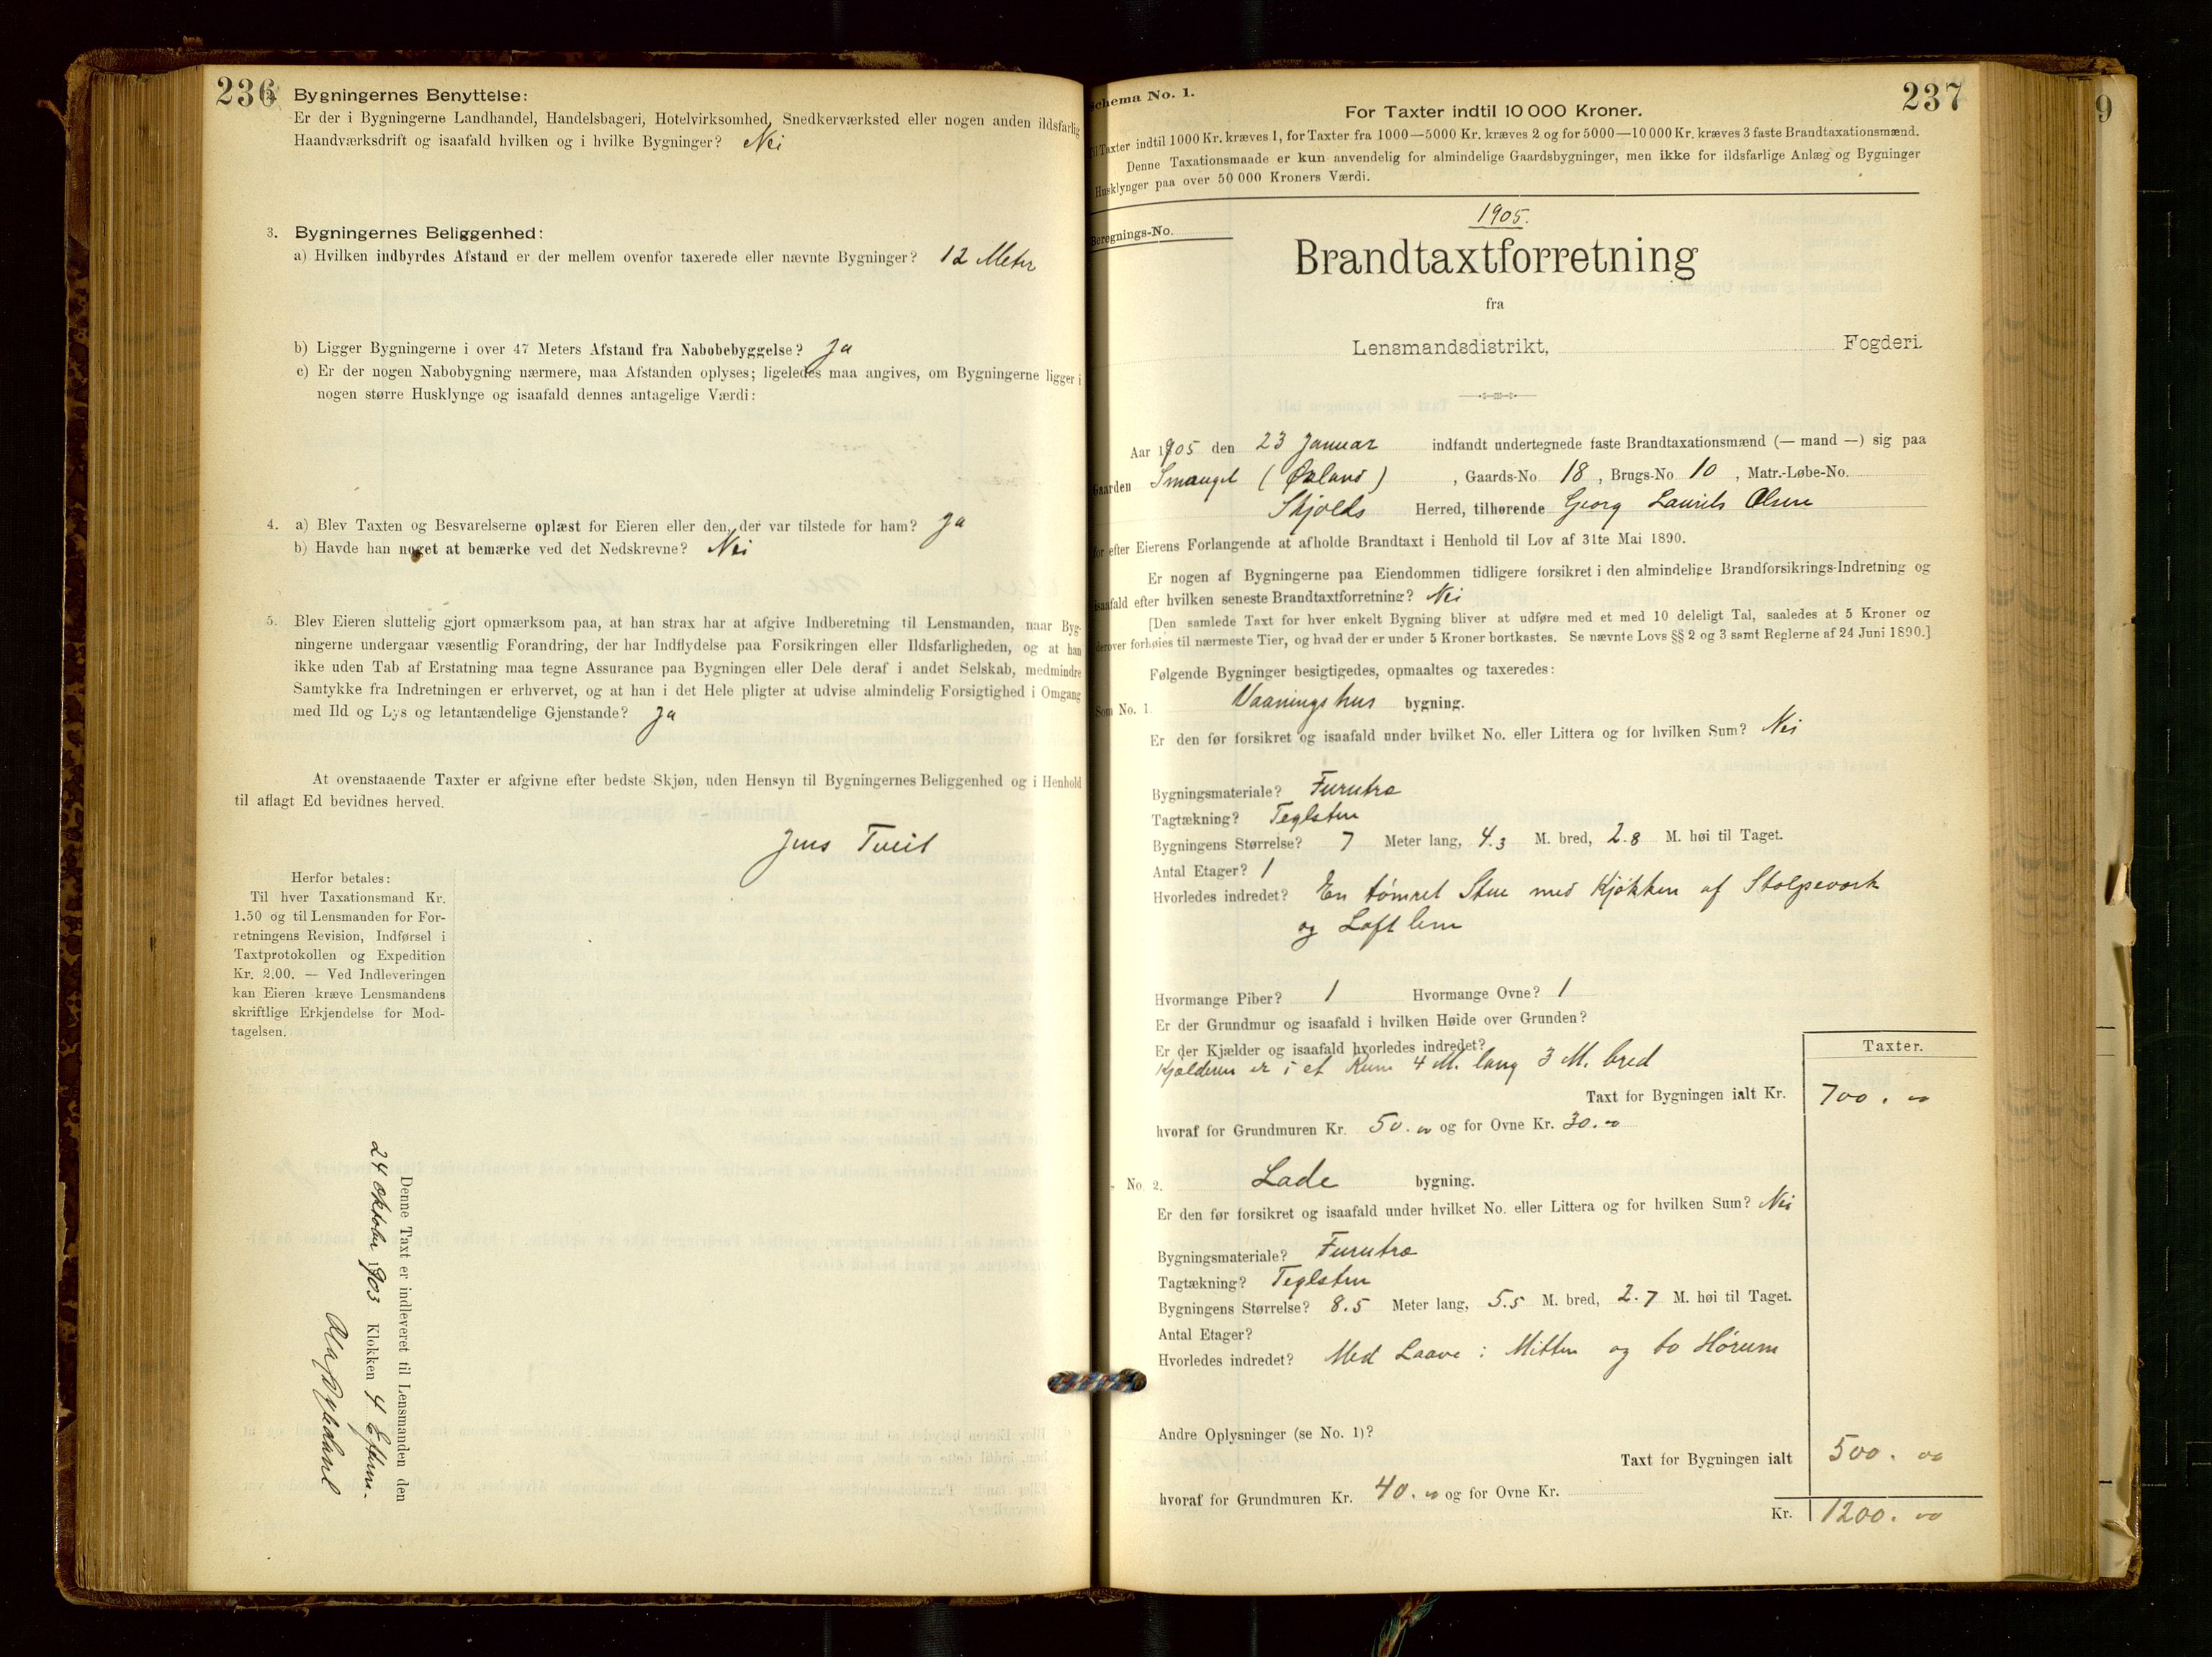 236
2. Bygningernes Benyttelse:
Er der i Bygningerne Landhandel, Handelsbageri, Hotelvirksomhed, Snedkerværksted eller nogen anden ildsfarlig
Haandværksdrift og isaafald hvilken og i hvilke Bygninger? Nei
3. Bygningernes Beliggenhed:
a) Hvilken indbyrdes Afstand er der mellem ovenfor taxerede eller nævnte Bygninger? 12 Meter
b) Ligger Bygningerne i over 47 Meters Afstand fra Nabobebyggelse? Ja
c) Er der nogen Nabobygning nærmere, maa Afstanden oplyses; ligeledes maa angives, om Bygningerne ligger i
nogen større Husklynge og isaafald dennes antagelige Værdi:
4. a) Blev Taxten og Besvarelserne oplæst for Eieren eller den, der var tilstede for ham? Ja
b) Havde han noget at bemærke ved det Nedskrevne? Nei
5. Blev Eieren sluttelig gjort opmærksom paa, at han strax har at afgive Indberetning til Lensmanden, naar Byg-
ningerne undergaar væsentlig Forandring, der har Indflydelse paa Forsikringen eller Ildsfarligheden, og at han
ikke uden Tab af Erstatning maa tegne Assurance paa Bygningen eller Dele deraf i andet Selskab, medmindre
Samtykke fra Indretningen er erhvervet, og at han i det Hele pligter at udvise almindelig Forsigtighed i Omgang
med Ild og Lys og letantændelige Gjenstande? Ja
At ovenstaaende Taxter er afgivne efter bedste Skjøn, uden Hensyn til Bygningernes Beliggenhed og i Henhold
til aflagt Ed bevidnes herved.
Jens Tveit
Herfor betales:
Til hver Taxationsmand Kr.
1.50 og til Lensmanden for For-
retningens Revision, Indførsel i
Taxtprotokollen og Expedition
Kr. 2.00. — Ved Indleveringen
kan Eieren kræve Lensmandens
skriftlige Erkjendelse for Mod-
tagelsen.
Denne Taxt er indleveret til Lensmanden den
24 Oktober 1903 Klokken 4 Efterm.
237
Schema No. 1.
For Taxter indtil 10 000 Kroner.
Til Taxter indtil 1000 Kr. kræves 1, for Taxter fra 1000—5000 Kr. kræves 2 og for 5000—10 000 Kr. kræves 3 faste Brandtaxationsmænd.
Denne Taxationsmaade er kun anvendelig for almindelige Gaardsbygninger, men ikke for ildsfarlige Anlæg og Bygninger
i Husklynger paa over 50 000 Kroners Værdi.
1905.
Beregnings-No.
Brandtaxtforretning
fra
Lensmandsdistrikt, Fogderi.
Aar 1905 den 23 Januar indfandt undertegnede faste Brandtaxationsmænd (— mand —) sig paa
Gaarden Smauget (Øxland), Gaards-No 18, Brugs-No 10, Matr.-Løbe-No.
Skjolds Herred, tilhørende Georg Laurits Olsen
for efter Eierens Forlangende at afholde Brandtaxt i Henhold til Lov af 31te Mai 1890.
Er nogen af Bygningerne paa Eiendommen tidligere forsikret i den almindelige Brandforsikrings-Indretning og
isaafald efter hvilken seneste Brandtaxtforretning? Nei
[Den samlede Taxt for hver enkelt Bygning bliver at udføre med et med 10 deleligt Tal, saaledes at 5 Kroner og
derover forhøies til nærmeste Tier, og hvad der er under 5 Kroner bortkastes. Se nævnte Lovs §§ 2 og 3 samt Reglerne af 24 Juni 1890.]
Følgende Bygninger besigtigedes, opmaaltes og taxeredes:
Som No. 1. Vaaningshus bygning.
Er den før forsikret og isaafald under hvilket No. eller Littera og for hvilken Sum? Nei
Bygningsmateriale? Furutræ
Tagtækning? Teglsten
Bygningens Størrelse? 7 Meter lang, 4.3 M. bred, 2.8 M. høi til Taget.
Antal Etager? 1
Hvorledes indredet? En tømret Stue med Kjøkken af Stolpeverk
og Loft lem
Hvormange Piber? 1 Hvormange Ovne? 1
Er der Grundmur og isaafald i hvilken Høide over Grunden?
Er der Kjælder og isaafald hvorledes indredet?
Kjælderen er i et Rum 4 M. lang 3 M. bred
Taxter.
Taxt for Bygningen ialt Kr. 700. 00
hvoraf for Grundmuren Kr. 50. 00 og for Ovne Kr. 30. 00
- No. 2. Lade bygning.
Er den før forsikret og isaafald under hvilket No. eller Littera og for hvilken Sum? Nei
Bygningsmateriale? Furutræ
Tagtækning? Teglsten
Bygningens Størrelse? 8.5 Meter lang, 5.5 M. bred, 2.7 M. høi til Taget.
Antal Etager?
Hvorledes indredet? Med Laave i Mitten og to Hørum
Andre Oplysninger (se No. 1)?
Taxt for Bygningen ialt 500. 00
hvoraf for Grundmuren Kr. 40. 00 og for Ovne Kr.
Kr. 1200. 00
9